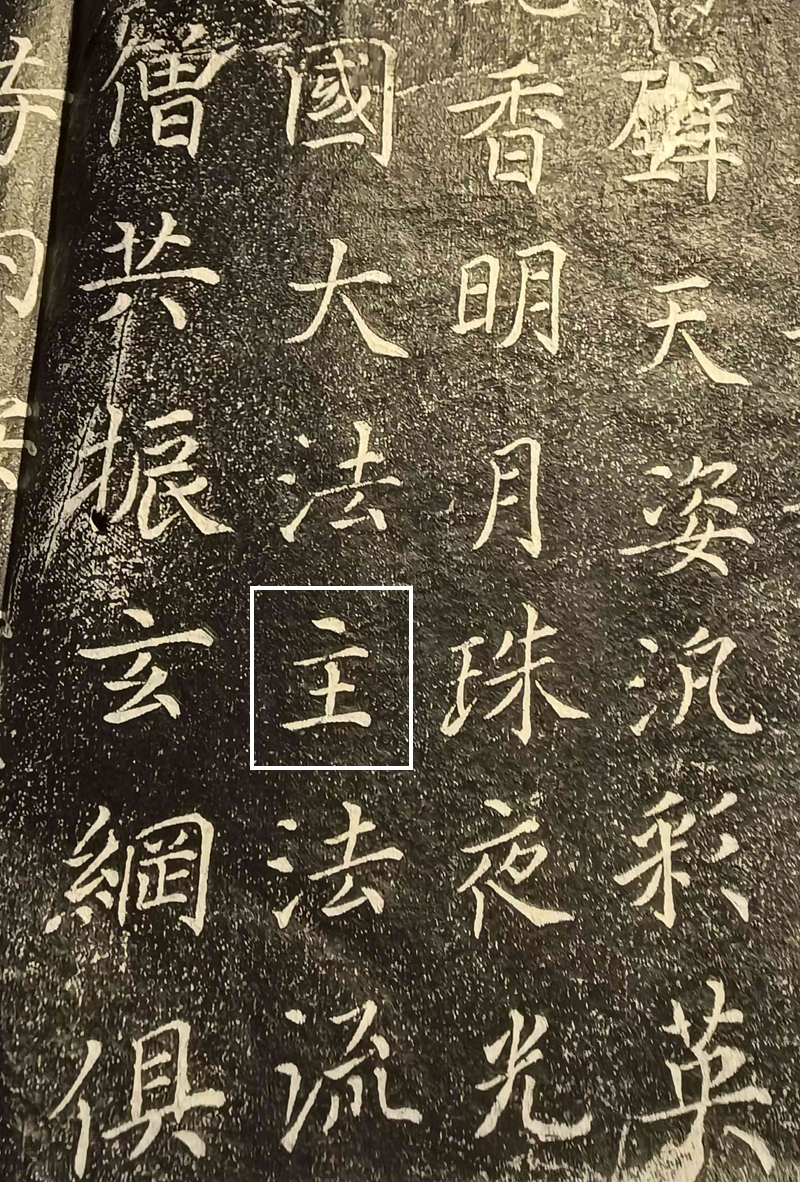 天姿汎彩英
香明月珠夜光
國大法主法流
僧共振玄綱俱